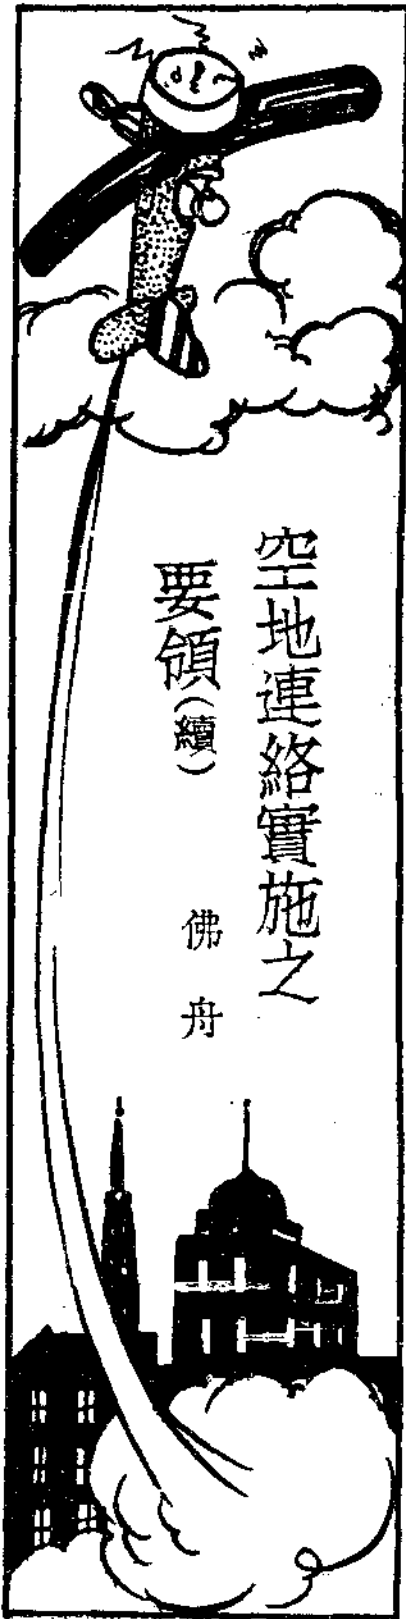 空地連絡實施之
要領(續)
佛舟